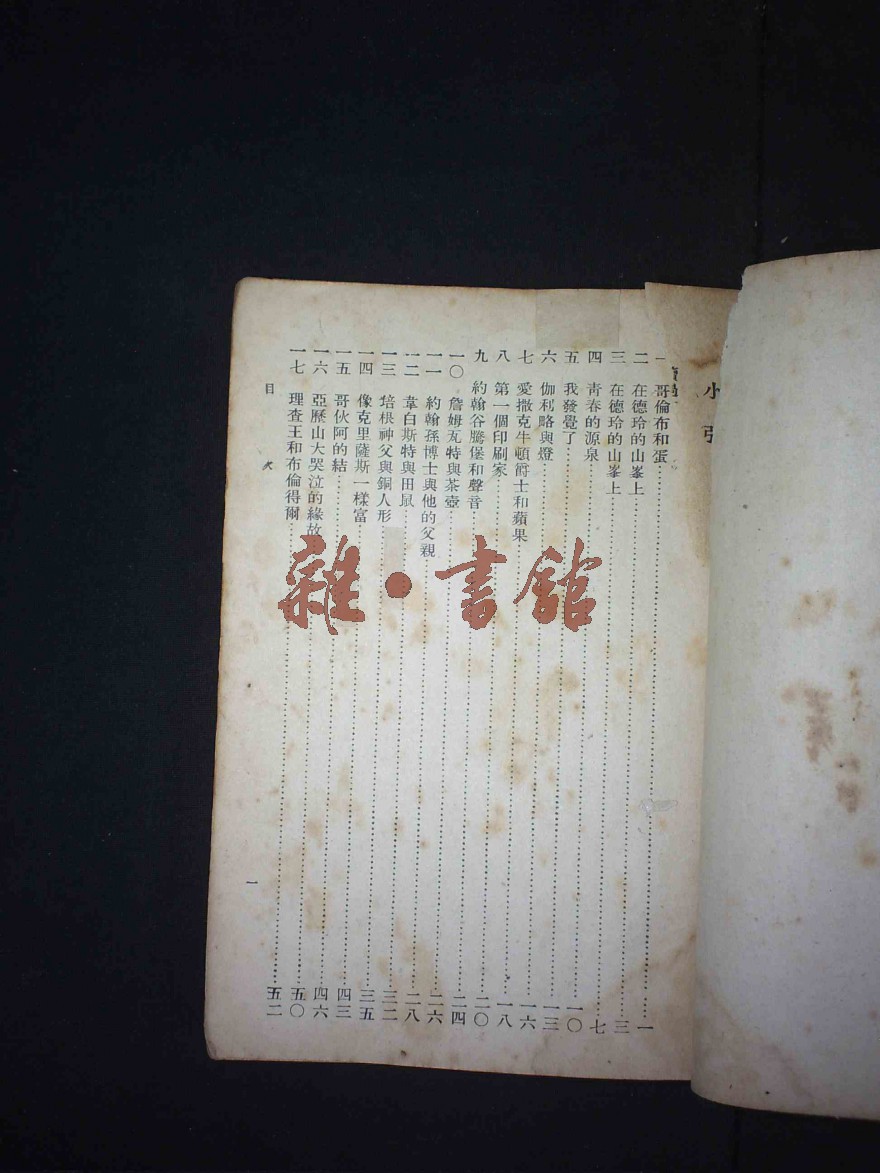 小引
一 哥倫布和蛋……一
二 在德玲的山峯上……三
三 在德玲的山峯上……七
四 青春的源泉……一〇
五 我發覺了……一三
六 伽利略與燈……一六
七 愛撒克牛頓爵士和蘋果……一八
八 第一個印刷家……二〇
九 約翰谷騰堡和聲音……二四
一〇 詹姆瓦特與茶壺……二六
一一 約翰孫博士與他的父親……二八
一二 韋白斯特與田鼠……三二
一三 培根神父與銅人形……三五
一四 像克里薩斯一樣富……四三
一五 哥伙阿的結……四六
一六 亞歷山大哭泣的緣故……五〇
一七 理查王和布倫得爾……五二
目次
一
雜·書館